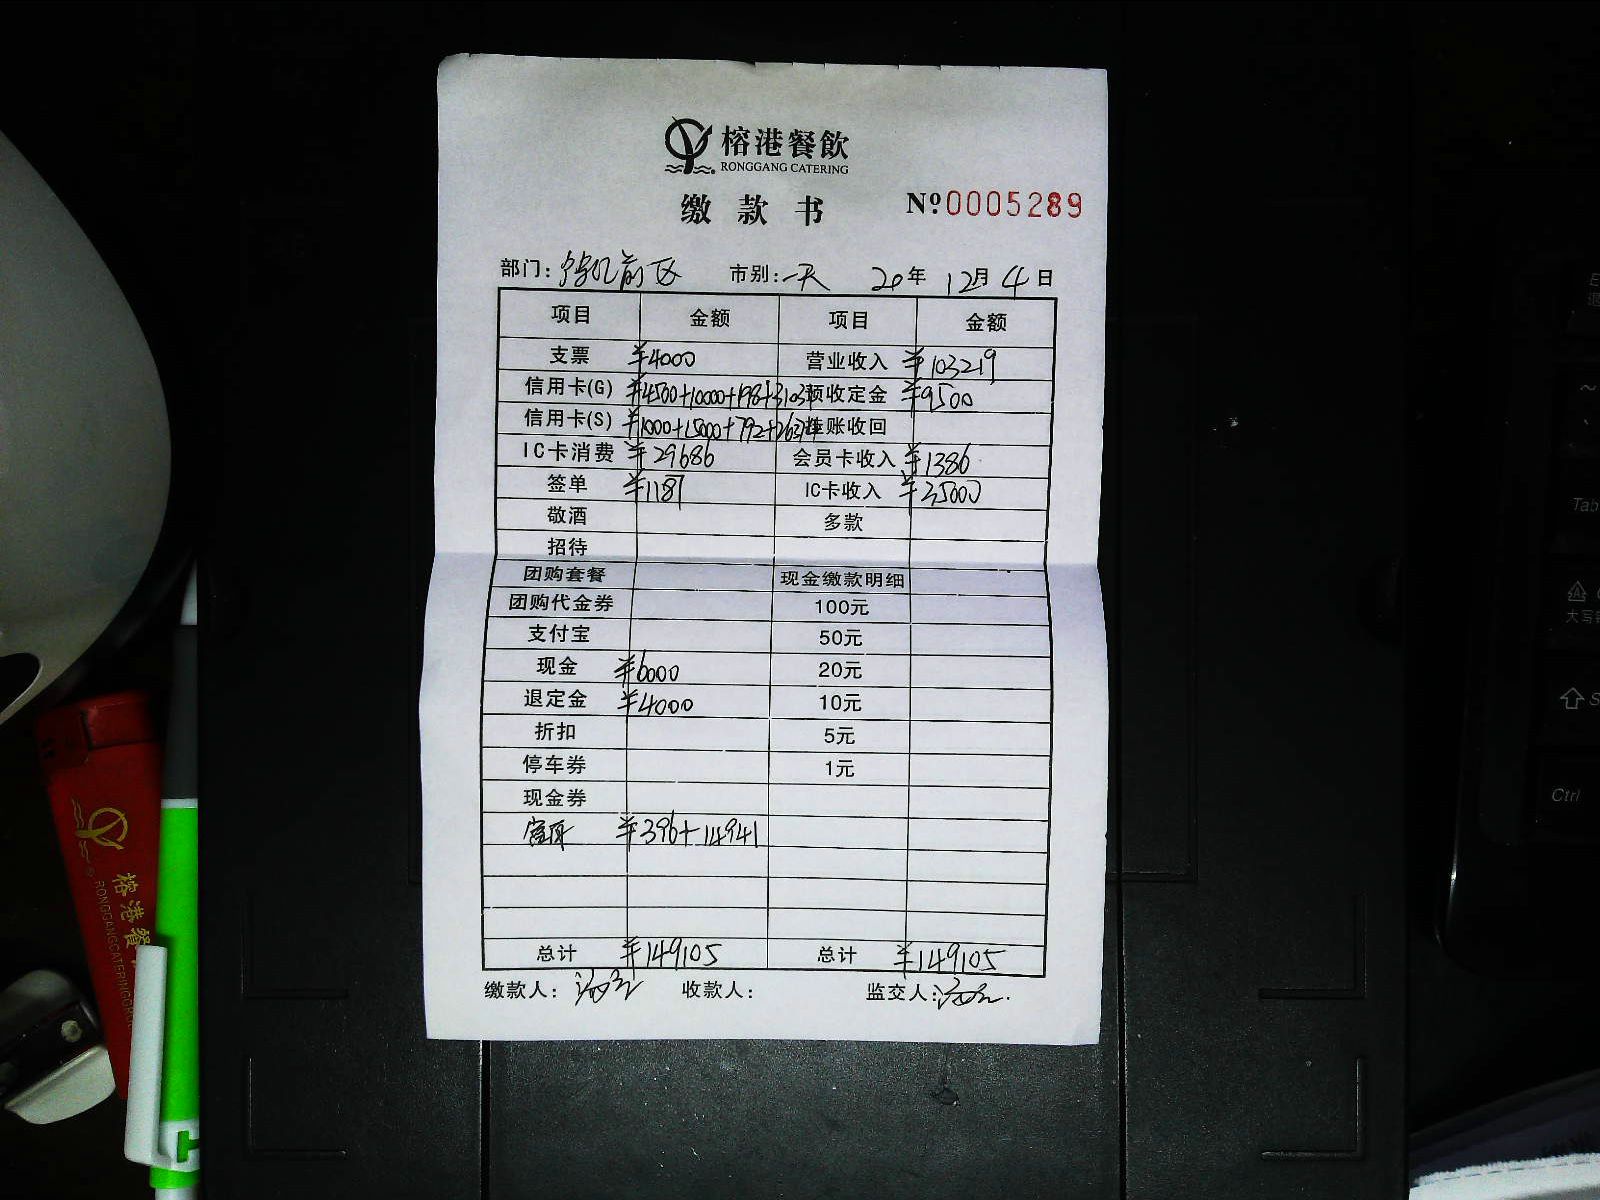 榕港餐飲
RONGGANG CATERING
缴款书 №0005289
部门: 前区 市别:一天 20年 12月 4日
项目 金额 项目 金额
支票 ¥4000 营业收入 ¥103219
信用卡(G) 预收定金 ¥9500
信用卡(S) 挂账收回
IC卡消费 ¥29686 会员卡收入 ¥1386
签单 ¥1181 IC卡收入 ¥35000
敬酒 多款
招待
团购套餐 现金缴款明细
团购代金券 100元
支付宝 50元
现金 ¥6000 20元
退定金 ¥4000 10元
折扣 5元
停车券 1元
现金券
¥396+14941
总计 ¥149105 总计 ¥149105
缴款人: 收款人: 监交人:
榕港餐
RONGGANGCATERING
Tab
大写
Ctrl